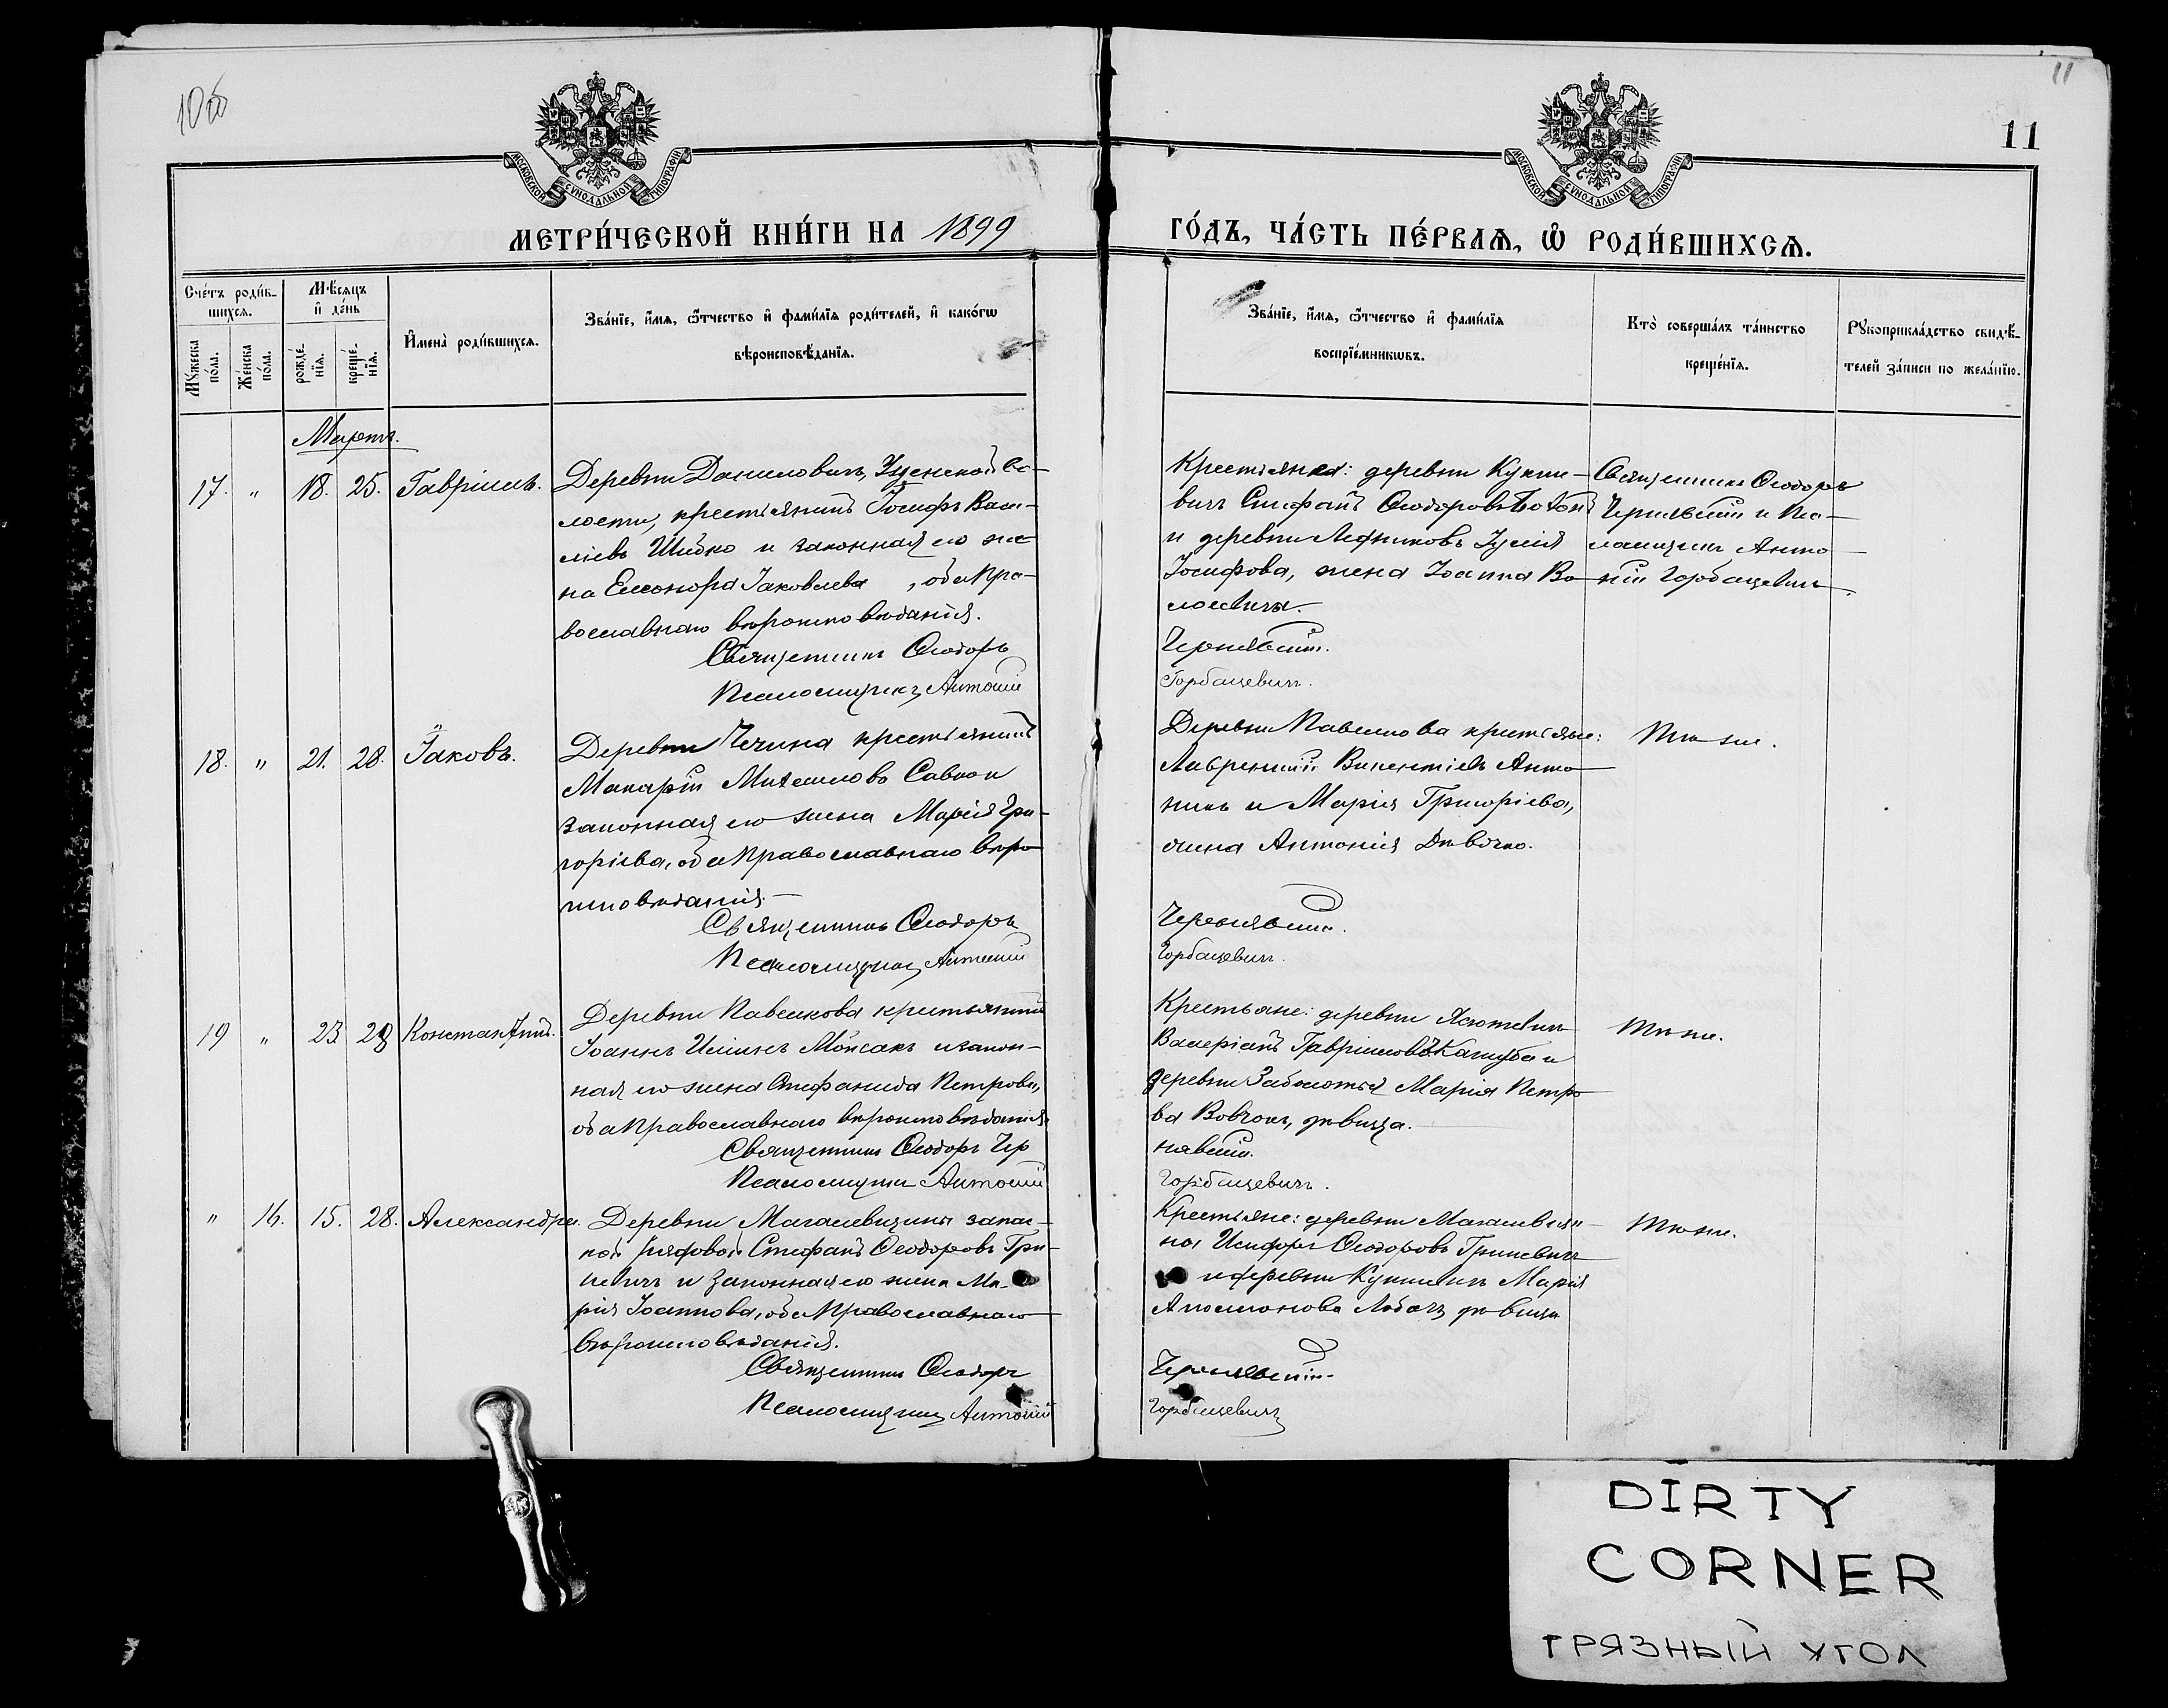 10об
11
11
МОСКОВСКОЙ СѴНОДАЛЬНОЙ ТИПОГРАФІИ
МОСКОВСКОЙ СѴНОДАЛЬНОЙ ТИПОГРАФІИ
МЕТРИ́ЧЕСКОЙ КНИ́ГИ НА 1899
ГО́ДЪ, ЧА́СТЬ ПЕ́РВАѦ, Ѡ҆ РОДИ́ВШИХСѦ.
Сче́тъ роди́в-
шихсѧ.
Мѣ́сѧцъ
и҆ де́нь
Мꙋ́жеска
по́ла.
Же́нска
по́ла.
рожде́-
нїѧ.
креще́-
нїѧ.
И҆мена̀ роди́вшихсѧ.
Зва́нїе, и҆́мѧ, ѻ҆́тчество и҆ фами́лїѧ роди́телей, и҆ како́гѡ
вѣроисповѣ́данїѧ.
Зва́нїе, и҆́мѧ, ѻ҆́тчество и҆ фами́лїѧ
воспрїе́мникѡвъ.
Кто̀ соверша́лъ та́инство
креще́нїѧ.
Рꙋкоприкла́дство свидѣ́-
телей за́писи по жела́нїю.
Мартъ.
17. " 18. 25. Гавріилъ.
Деревни Даниловичъ, Узденской во-
лости, крестьянинъ Іосифъ Васи-
ліевъ Шибко и законная его же-
на Елеонора Іаковлева, оба Пра-
вославнаго вѣроисповѣданія.
Священникъ Ѳеодоръ
Псаломщикъ Антоній
Крестьяне: деревни Кукши-
вичъ Стефанъ Ѳеодоровъ
и деревни Іулія
Іосифова, жена Іоанна Во-
Чернявскій.
Горбацевичъ.
Священникъ Ѳеодоръ
Чернявскій и Пса-
ломщикъ Анто-
ній Горбацевичъ.
18. " 21. 28. Іаковъ.
Деревни Чечина крестьянинъ
Макарій Михаиловъ и
законная его жена Марія Гри-
горіева, оба Православнаго вѣро-
исповѣданія.
Священникъ Ѳеодоръ
Псаломщикъ Антоній
Деревни Павелкова крестьяне:
Лаврентій Викентіевъ Анто-
никъ и Марія Григоріева,
жена Антонія Дѣвочко.
Чернявскій.
Горбацевичъ.
Тѣ же.
19 " 23 28 Константинъ.
Деревни Павелкова крестьянинъ
Іоаннъ Иліинъ Мойсакъ и закон-
ная его жена Стефанида Петрова,
оба Православнаго вѣроисповѣданія.
Священникъ Ѳеодоръ Чер
Псаломщикъ Антоній
Крестьяне: деревни
Валеріанъ Гавріиловъ и
деревни Заболотья Марія Петро-
ва Вовчокъ, дѣвица.
нявскій.
Горбацевичъ.
Тѣ же.
" 16. 15. 28. Александра.
Деревни Магалевщины запас-
ной рядовой Стефанъ Ѳеодоровъ Гри-
невичъ и законная его жена Ма-
рія Іоаннова, оба Православнаго
вѣроисповѣданія.
Священникъ Ѳеодоръ
Псаломщикъ Антоній
Крестьяне: деревни Магалевщи-
ны Ѳеодоровъ Гриневичъ
и деревни Кукшевичъ Марія
дѣвица
Чернявскій.
Горбацевичъ
Тѣ же.
DIRTY
CORNER
ГРЯЗНЫЙ УГОЛ